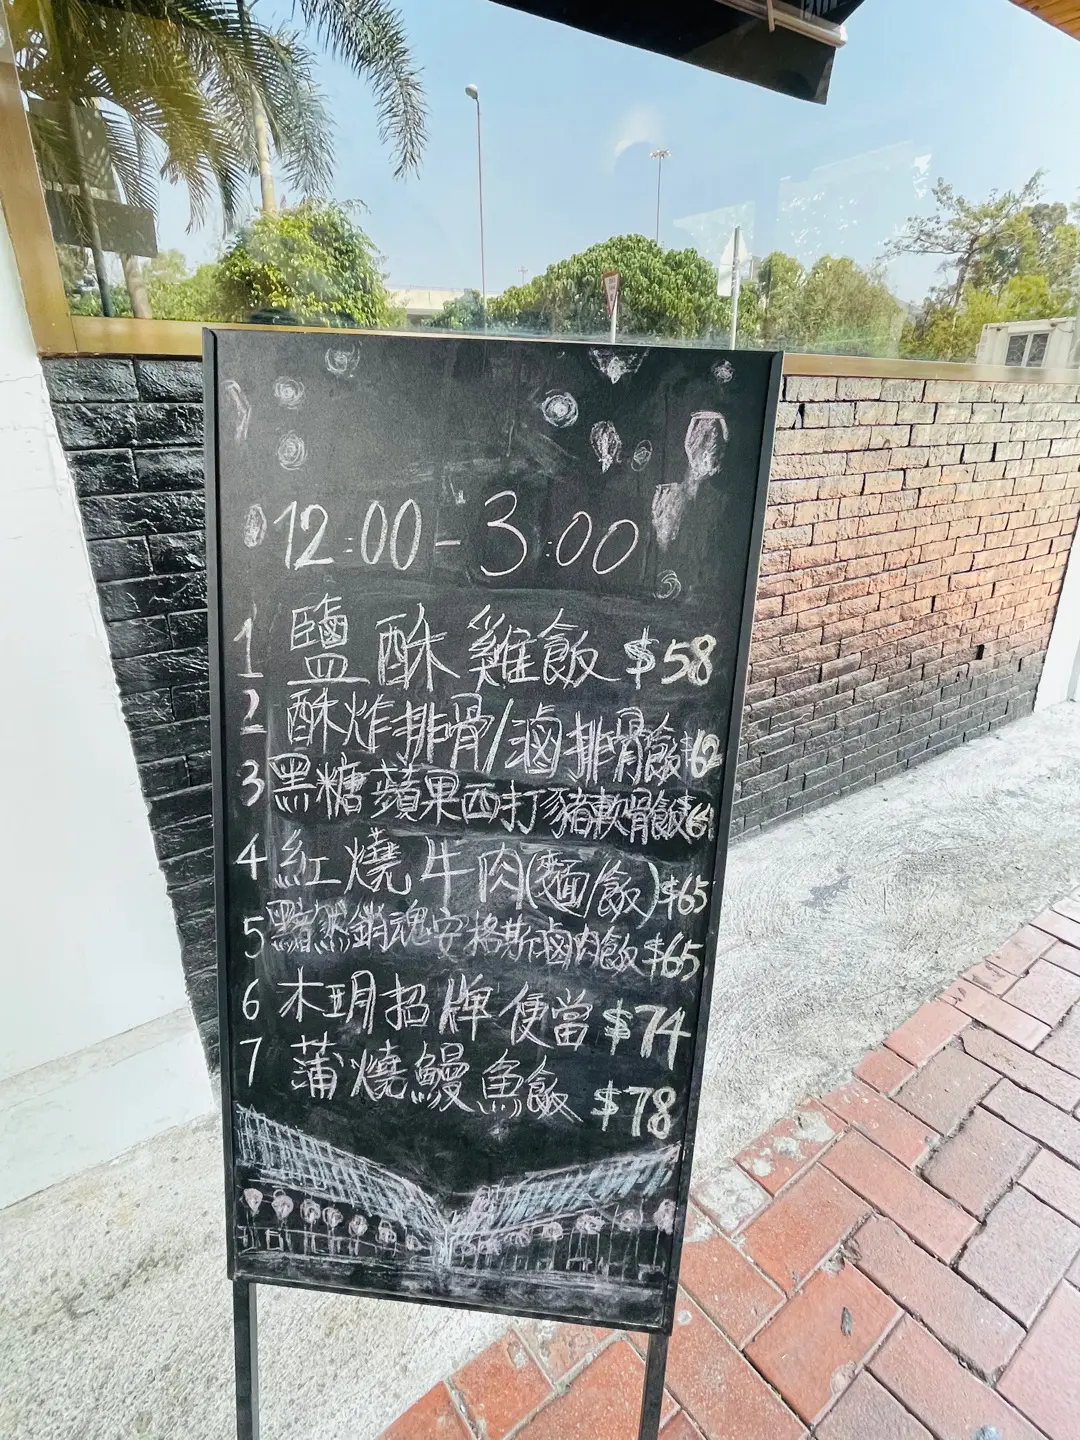 12:00-3:00
1 鹽酥雞飯 $58
2 酥炸排骨/滷排骨飯 $62
3 黑糖蘋果西打豬軟骨飯 $64
4 紅燒牛肉(麵/飯) $65
5 黯然銷魂安格斯滷肉飯 $65
6 木玥招牌便當 $74
7 蒲燒鰻魚飯 $78